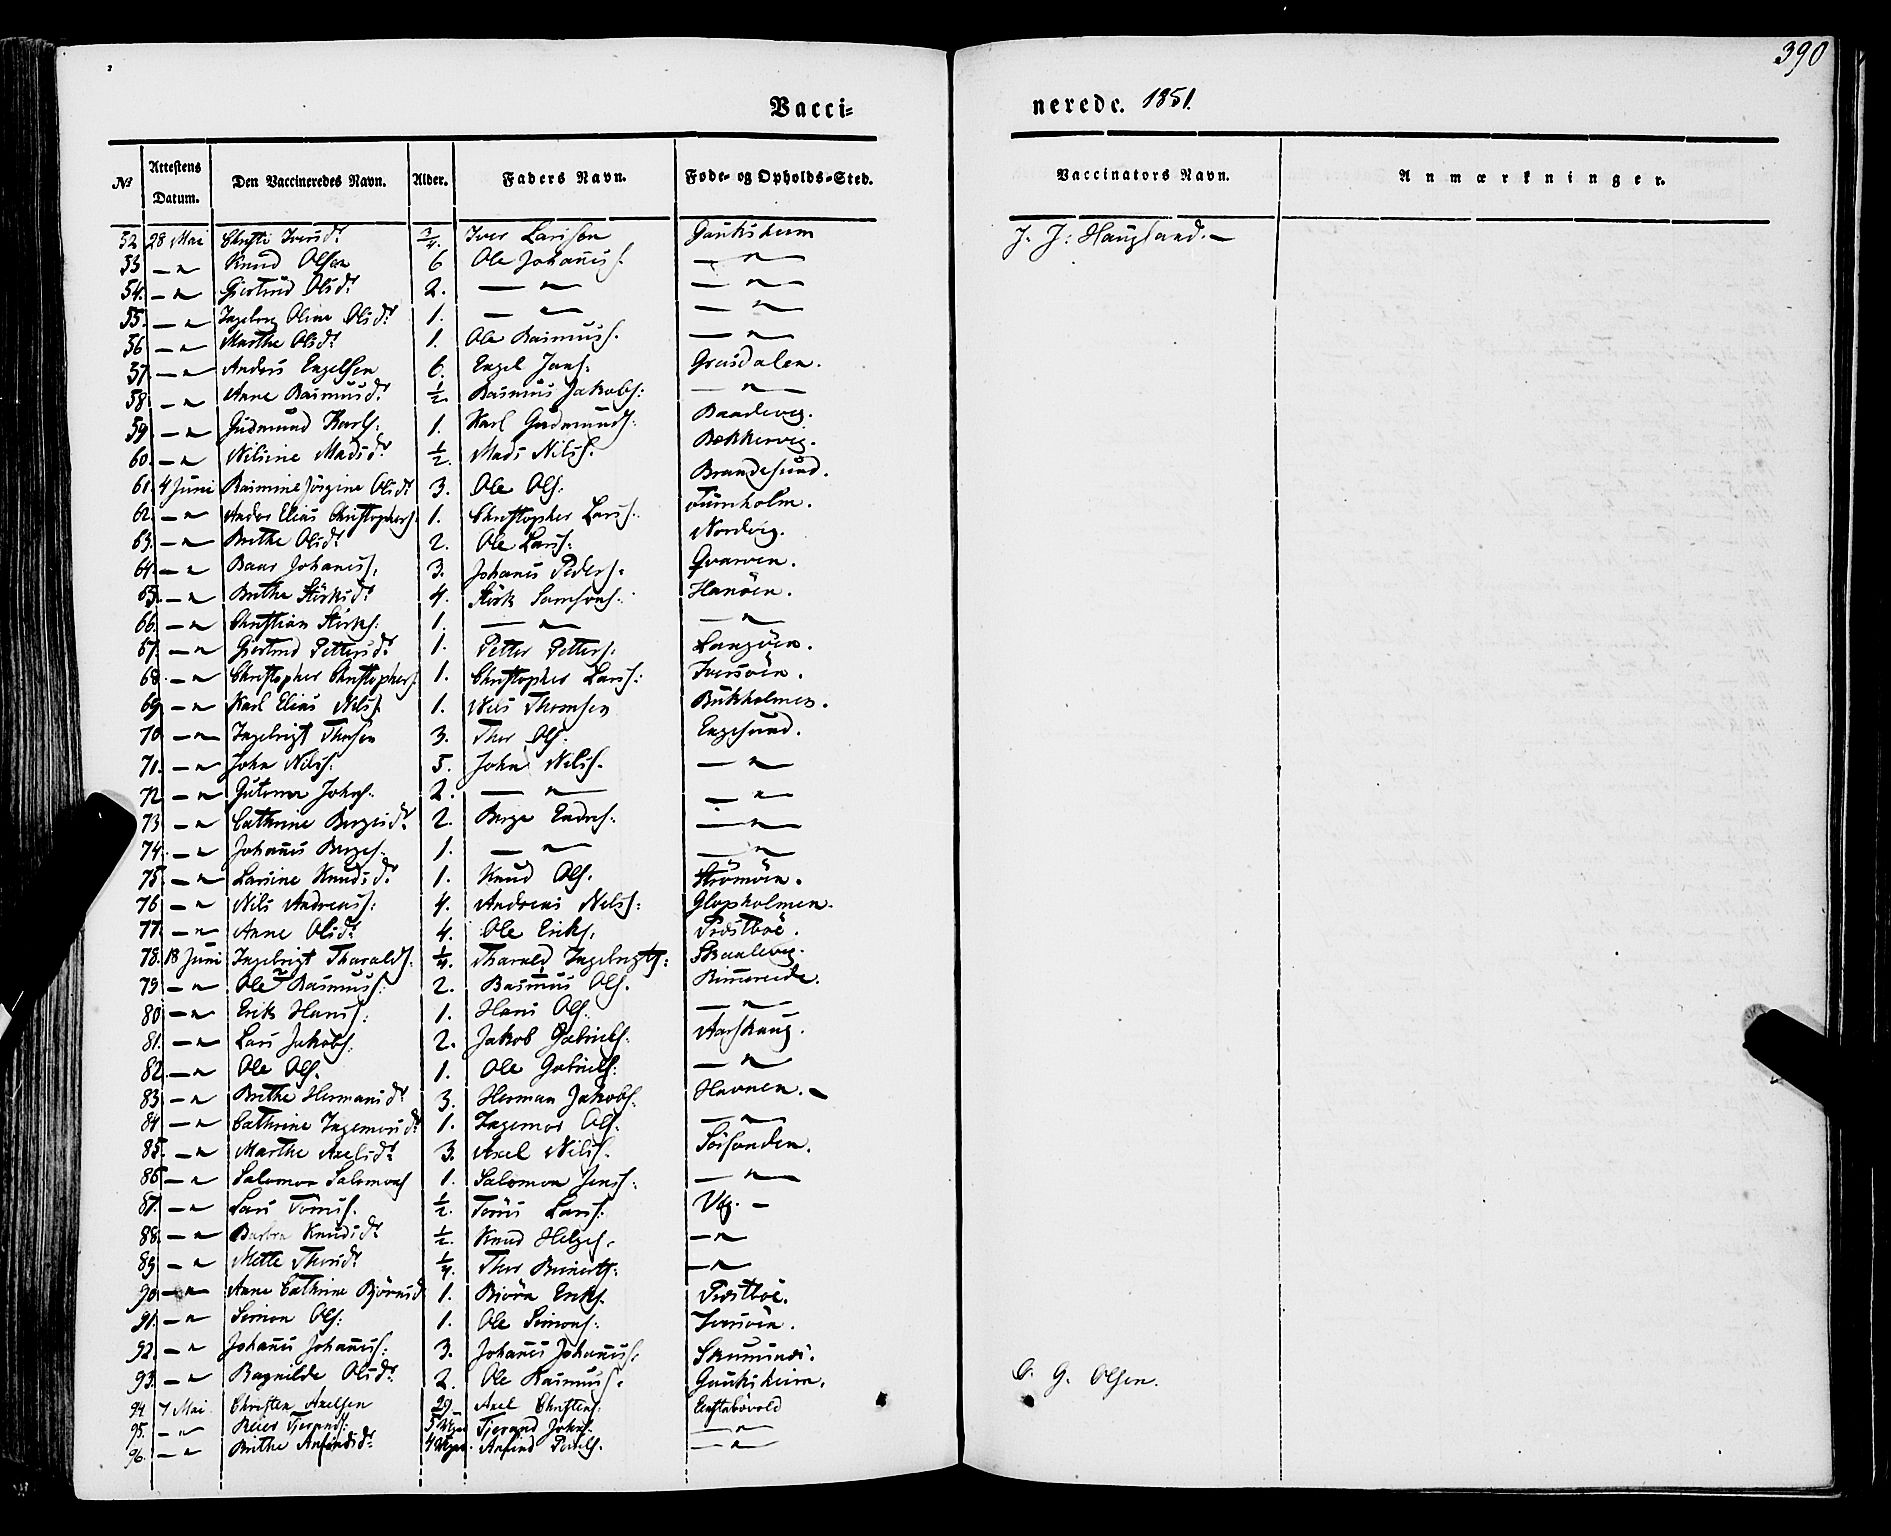 390
Vacci=
nerede. 1851.
No Attestens Datum. Den Vaccineredes Navn. Alder. Faders Navn. Føde- og Opholds-Sted. Vaccinators Navn. Anmærkninger.
52 28 Mai Christi Iversdr 3/4. Iver Larssen Gauksheim J. J. Haugland. —
53 — " Knud Olsen 6 Ole Johaness. — " —
54. — " Giertrud Olsdr 2. — " — — " —
55. — " Ingeborg Oline Olsdr 1. — " — — " —
56 — " Marthe Olsdr 1. Ole Rasmuss. — " —
57. — " Anders Engelsen 6. Engel Jans: Grasdalen.
58 — " Anne Rasmusdr 1/2. Rasmus Jakobs: — " —
59 — " Gudmund Karls. 1. Karl Gudmunds. Baadevig.
60. — " Nilsine Madsdr 1/2. Mads Nilss. Bekkervig.
61. 4 Juni Rasmine Jørgine Olsdr 3. Ole Ols. Brandesund.
62. — " Anders Elias Christophers. 1. Christopher Larss. Tuinholm.
63. — " Brithe Olsdr 2. Ole Larss: Nordvig.
64 — " Baar Johaness. 3. Johanes Peders. Qvarven.
65. — " Brithe Størksdr 4. Størk Samsons. Hanøen.
66. — " Christian Størks. 1. — " — — " —
67. — " Giertrud Pettersdr 1. Petter Petters. Langøen.
68 — " Christopher Christophers. 1. Christopher Larss: Iversøen.
69 — " Karl Elias Nilss. 1. Nils Thomsen Bukholmen.
70 — " Ingebrigt Thorsen 3. Thor Ols. Engesund.
71. — " John Nilss. 5. John Nilss. — " —
72 — " Guttorm Johns. 2. — " — — " —
73 — " Cathrine Bergesdr 2. Berge Endres. — " —
74. — " Johannes Berges. 1. — " — — " —
75. — " Larsine Knudsdr 1. Knud Ols. Strømøen.
76 — " Nils Andreass: 4. Andreas Nelss: Glopholmen.
77. — " Anne Olsdr 4. Ole Eriks. Præstbøe.
78. 18 Juni Ingebrigt Tharalds. 1/4. Tharald Ingebrigts: Skaalevig.
79 — " Ole Rasmuss: 2. Rasmus Ols. Rimereide.
80 — " Erik Hanss: 1. Hans Ols. — " —
81. — " Lars Jakobs: 2. Jakob Gabriels. Aarskaug.
82. — " Ole Ols. 1. Ole Gabriels: — " —
83 — " Brithe Hermansdr 3. Herman Jakobs. Havnen. —
84 — " Cathrine Ingemorsdr 1. Ingemor Ols. — " —
85. — " Marthe Axelsdr 3. Axel Nilss. Søisanden.
86 — " Salomon Salomons 1. Salomon Jenss: — " —
87. — " Lars Tønis. 1/2. Tønis Larss. Vig. —
88. — " Barbra Knudsdr 1/2. Knud Helges. — "
89 — " Mette Thorsdr 1/4. Thor Beinerts. — "
90. — " Anne Cathrine Bjørnsd 1. Biörn Eriks. Præstbøe.
91. — " Simon Ols: 1. Ole Simons: Iversøen.
92. — " Johanes Johaness: 3. Johanes Johaness.
93. — " Ragnilde Olsdr 2. Ole Rasmuss. Gauksheim. O. G. Olsen.
94 7 Mai Christen Axelsen 29. Axel Christens:
95. — " Reier Tjerands: 5 Uger Tjerand Johns. — " —
96. — " Brithe Anfindsdr 4 Uger Anfind Povels. — " —